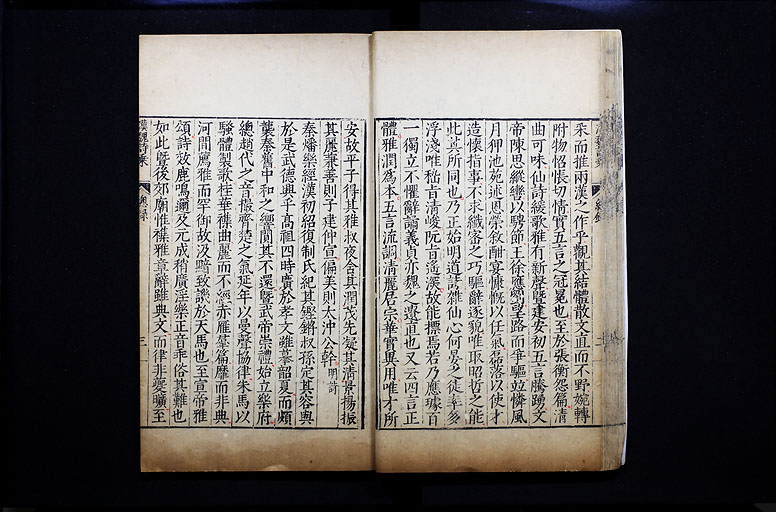 采而推兩漢之作乎觀其結體散文直而不野婉轉
附物怊悵切情實五言之冠冕也至於張衡怨篇清
曲可味仙詩緩歌雅有新聲暨建安初五言騰踴文
帝陳思縱轡以騁節王徐應劉望路而爭驅竝憐風
月狎池苑述恩榮敘酣宴慷慨以任氣磊落以使才
造懷指事不求纖密之巧驅辭逐貌唯取昭晢之能
此其所同也乃正始明道詩雜仙心何晏之徒率多
浮淺唯嵇旨清峻阮旨遙深故能標焉若乃應璩百
一獨立不懼辭譎義貞亦魏之遺直也又云四言正
體雅潤爲本五言流調清麗居宗華實異用唯才所
安故平子得其雅叔夜含其潤茂先凝其清景陽振
其麗兼善則子建仲宣偏美則太沖公幹明詩
秦燔樂經漢初紹復制氏紀其鏗鏘叔孫定其容典
於是武德興乎高祖四時廣於孝文雖摹韶夏而頗
襲秦舊中和之響闃其不還暨武帝崇禮始立樂府
總趙代之音撮齊楚之氣延年以曼聲協律朱馬以
騷體製歌桂華襍曲麗而不經赤雁羣篇靡而非典
河間薦雅而罕御故汲黯致譏於天馬也至宣帝雅
頌詩效鹿鳴邇及元成稍廣淫樂正音乖俗其難也
如此暨後郊廟惟襍雅章辭雖典文而律非夔曠至
漢魏詩乘
總錄
三